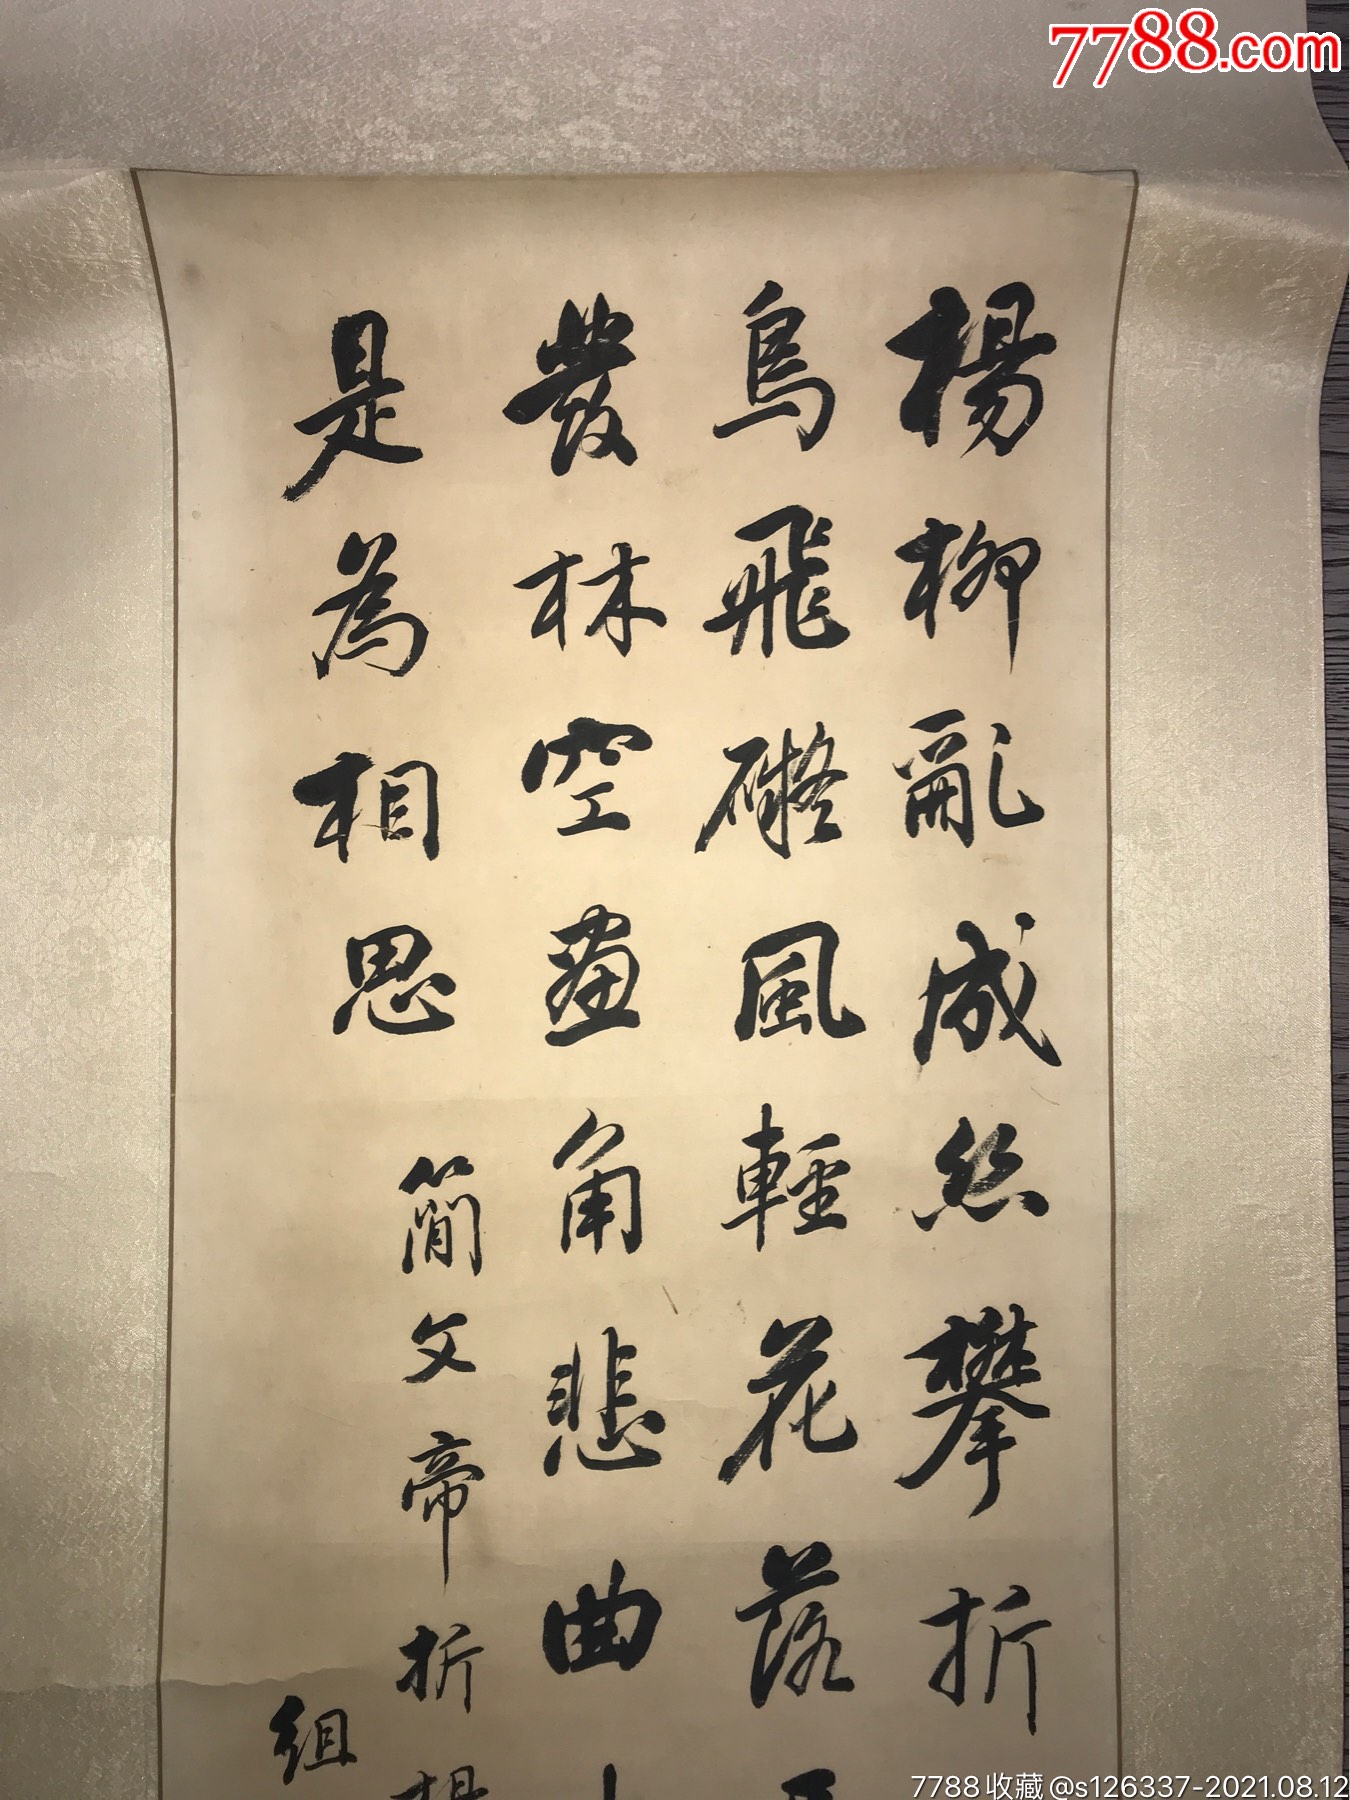 7788.com
楊柳亂成絲攀折
鳥飛礙風輕花落
發林空畫角悲曲
是為相思
簡文帝折楊
組
7788收藏@s126337-2021.08.12